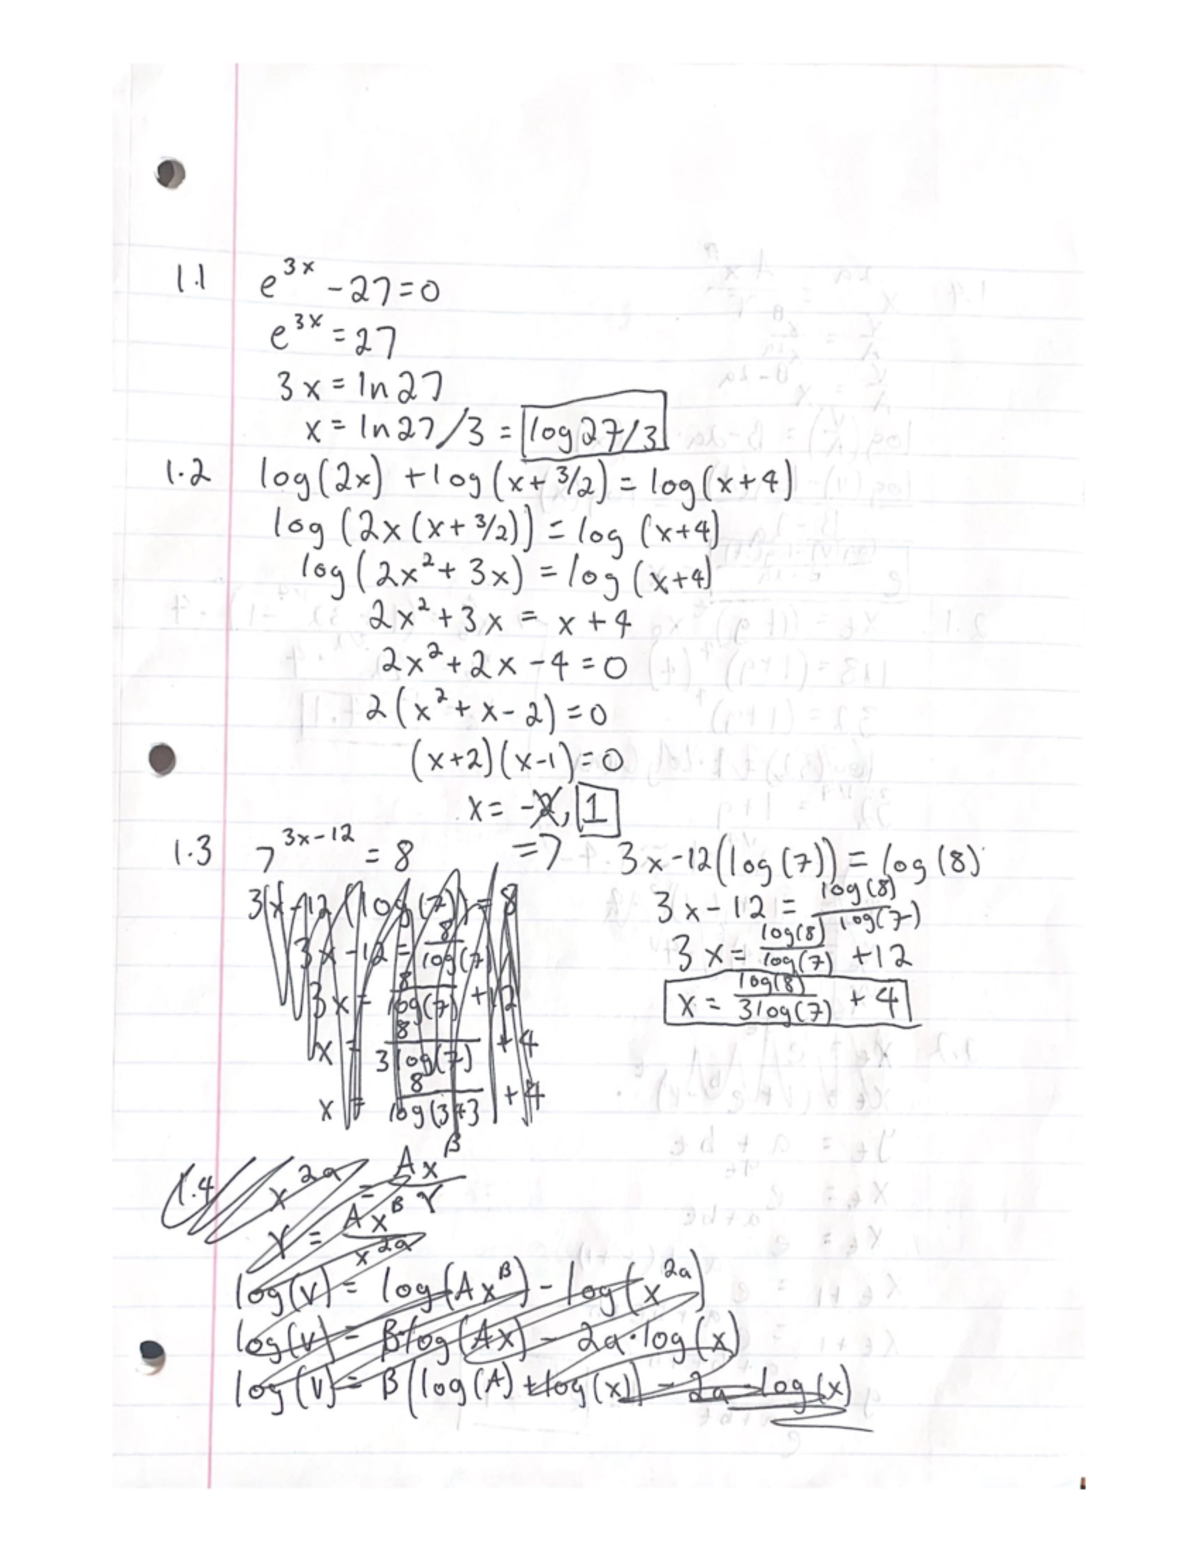 1.1 e^{3x} - 27 = 0
e^{3x} = 27
3x = ln27
x = ln27/3 = log27/3
1.2 log(2x) + log(x + 3/2) = log(x+4)
log(2x(x + 3/2)) = log(x+4)
log(2x² + 3x) = log(x+4)
2x² + 3x = x + 4
2x² + 2x - 4 = 0
2(x² + x - 2) = 0
(x+2)(x-1) = 0
x = -2, 1
1.3 7^{3x-12} = 8 =7
3x-12(log(7)) = 8
3x-12 = 8/log(7)
3x = 8/log(7) + 12
x = 8/3log(7) + 4
x = 8/log(343) + 4
3x-12(log(7)) = log(8)
3x-12 = log(8)/log(7)
3x = log(8)/log(7) + 12
x = log(8)/3log(7) + 4
1.4 x^{2a} = Ax^β/γ
γ = Ax^β/x^{2a}
log(γ) = log(Ax^β) - log(x^{2a})
log(γ) = β·log(Ax) - 2a·log(x)
log(γ) = β(log(A) + log(x)) - 2a·log(x)